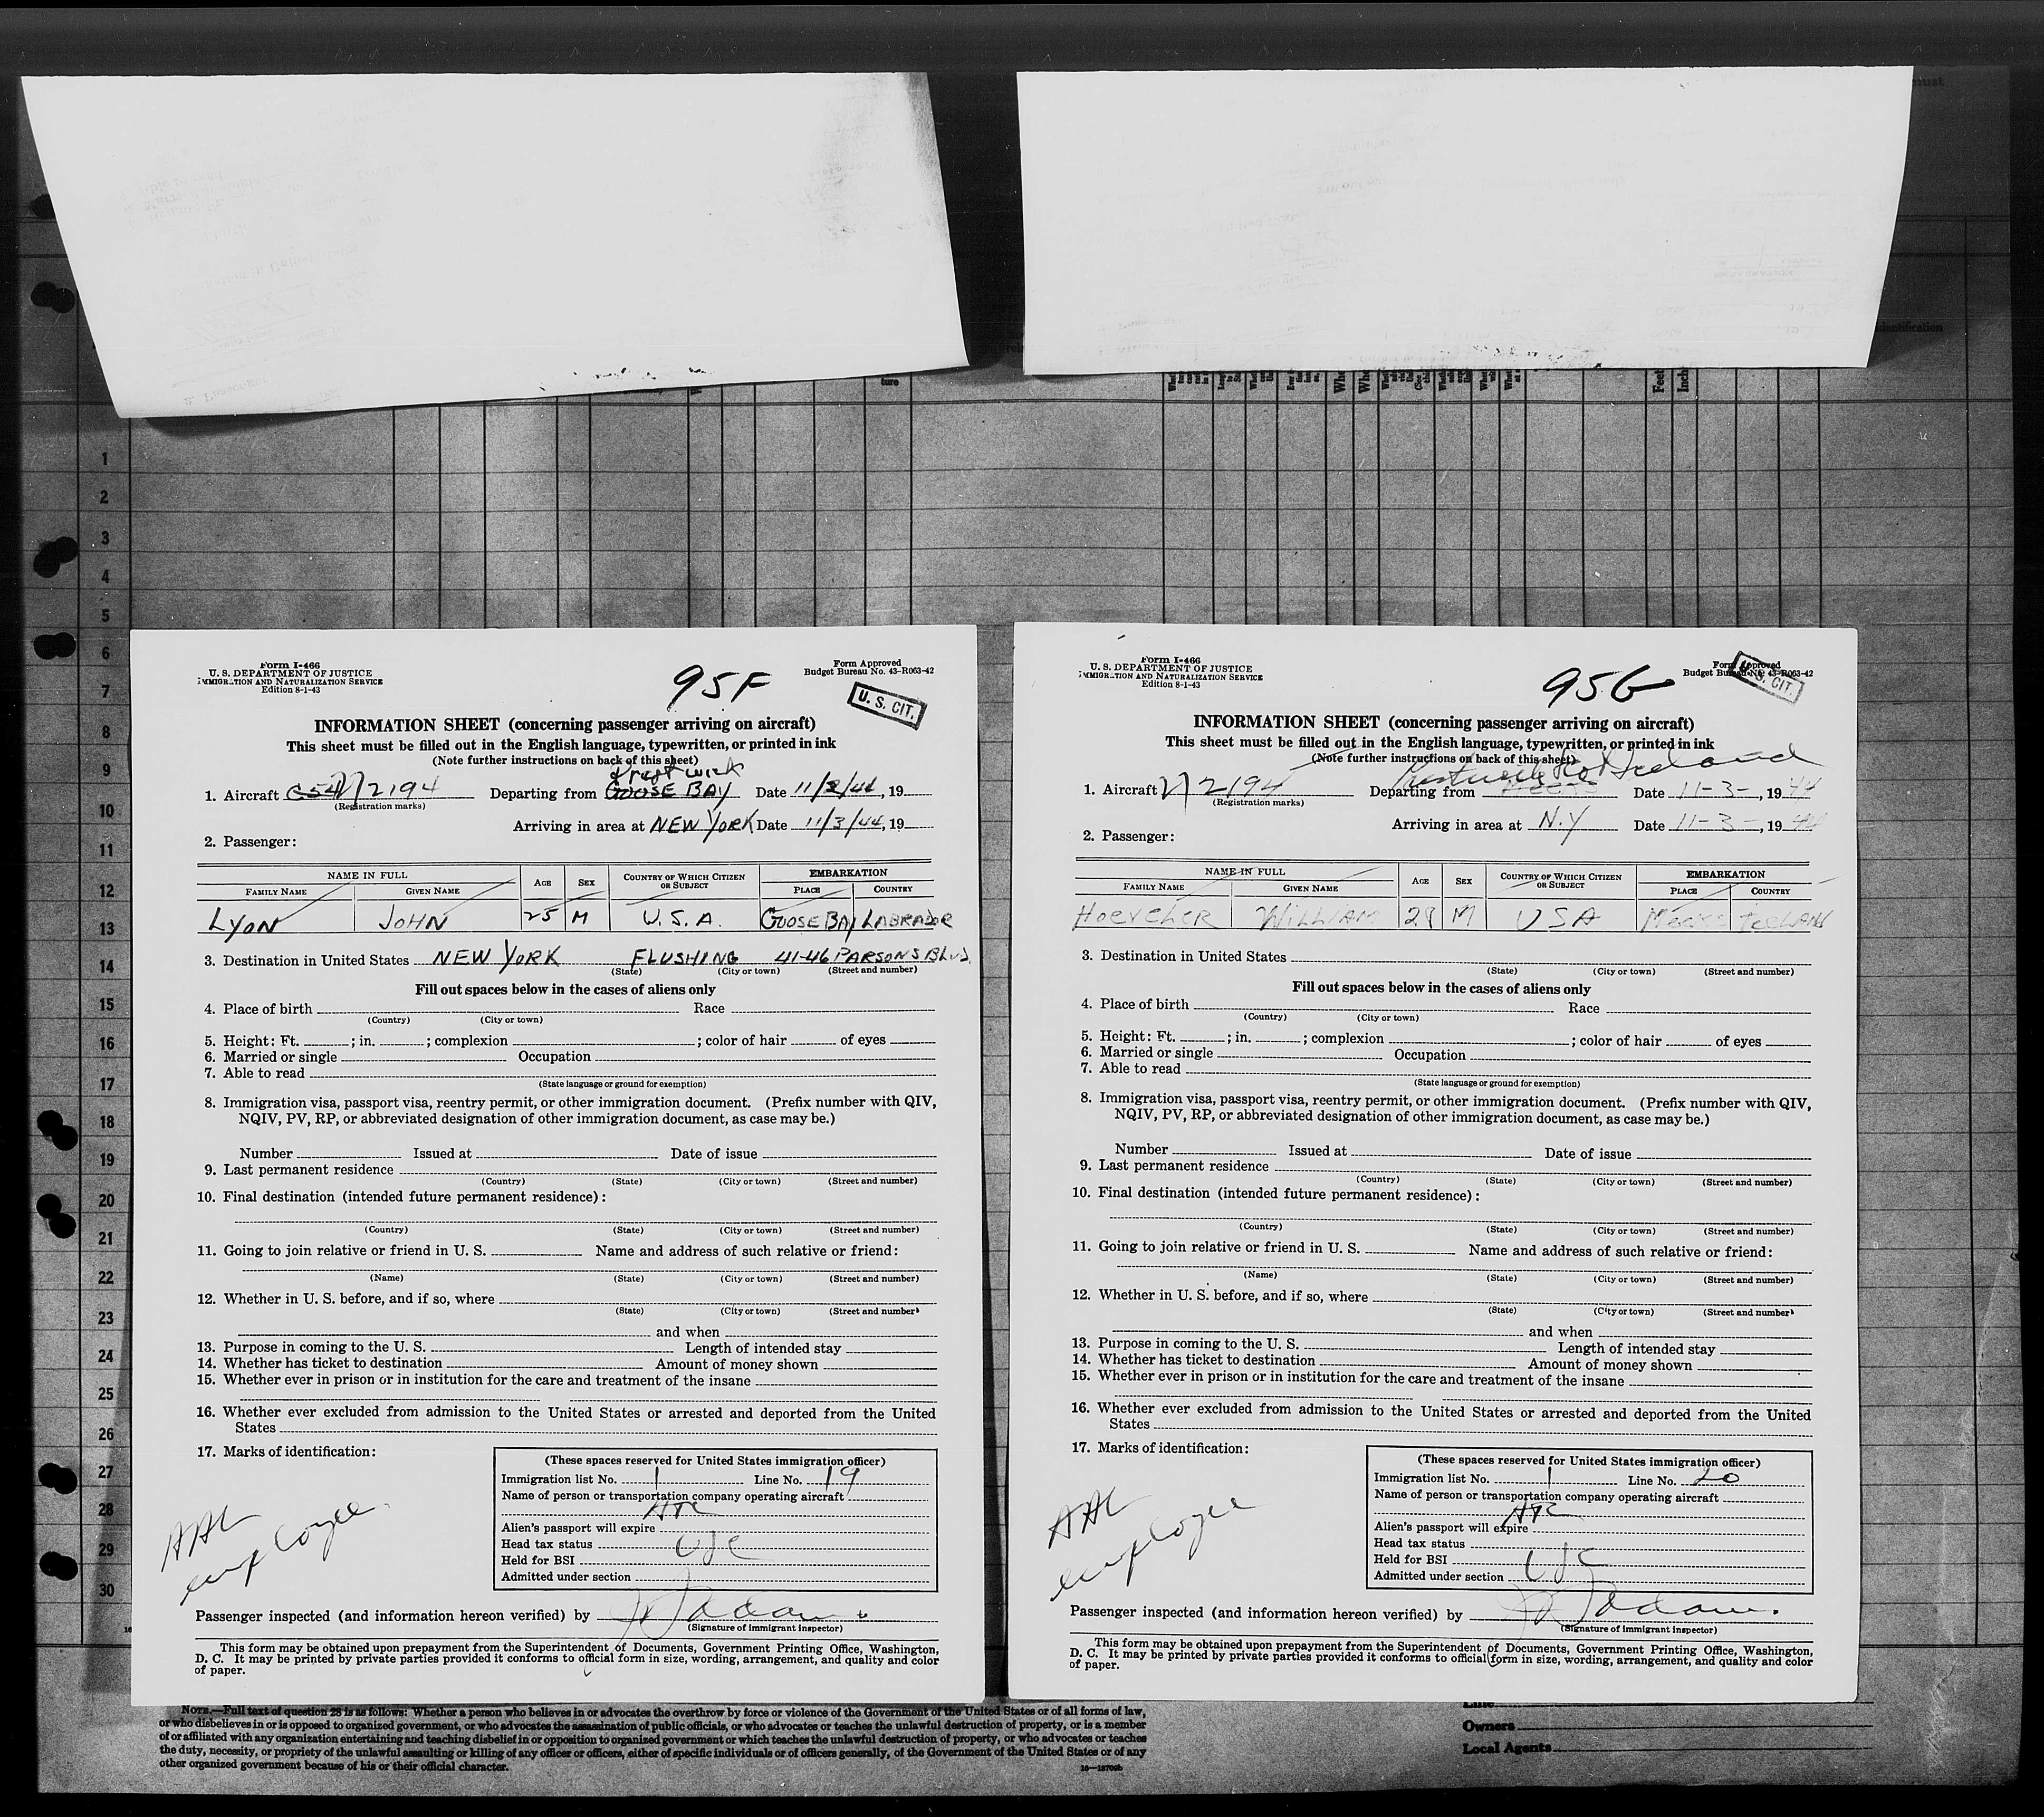 1
2
3
4
5
6
7
8
9
10
11
12
13
14
15
16
17
18
19
20
21
22
23
24
25
26
27
28
29
30
Form I-466
U. S. DEPARTMENT OF JUSTICE
IMMIGRATION AND NATURALIZATION SERVICE
Edition 8-1-43
95F
Form Approved
Budget Bureau No. 43-R063-42
U. S. CIT.
INFORMATION SHEET (concerning passenger arriving on aircraft)
This sheet must be filled out in the English language, typewritten, or printed in ink
(Note further instructions on back of this sheet)
1. Aircraft C54 2194 Departing from GOOSE BAY Date 11/2/44, 19
(Registration marks)
Arriving in area at NEW YORK Date 11/3/44, 19
2. Passenger:
NAME IN FULL AGE SEX COUNTRY OF WHICH CITIZEN OR SUBJECT EMBARKATION
FAMILY NAME GIVEN NAME PLACE COUNTRY
LYON JOHN 25 M U.S.A. GOOSE BAY LABRADOR
3. Destination in United States NEW YORK FLUSHING 41-46 PARSONS BLVD.
(State) (City or town) (Street and number)
Fill out spaces below in the cases of aliens only
4. Place of birth Race
(Country) (City or town)
5. Height: Ft. ; in. ; complexion ; color of hair of eyes
6. Married or single Occupation
7. Able to read
(State language or ground for exemption)
8. Immigration visa, passport visa, reentry permit, or other immigration document. (Prefix number with QIV,
NQIV, PV, RP, or abbreviated designation of other immigration document, as case may be.)
Number Issued at Date of issue
9. Last permanent residence
(Country) (State) (City or town) (Street and number)
10. Final destination (intended future permanent residence):
(Country) (State) (City or town) (Street and number)
11. Going to join relative or friend in U. S. Name and address of such relative or friend:
(Name) (State) (City or town) (Street and number)
12. Whether in U. S. before, and if so, where
(State) (City or town) (Street and number)
and when
13. Purpose in coming to the U. S. Length of intended stay
14. Whether has ticket to destination Amount of money shown
15. Whether ever in prison or in institution for the care and treatment of the insane
16. Whether ever excluded from admission to the United States or arrested and deported from the United
States
17. Marks of identification:
AAL
employee
(These spaces reserved for United States immigration officer)
Immigration list No. 1 Line No. 19
Name of person or transportation company operating aircraft
ATC
Alien's passport will expire
Head tax status USC
Held for BSI
Admitted under section
Passenger inspected (and information hereon verified) by
(Signature of immigrant inspector)
This form may be obtained upon prepayment from the Superintendent of Documents, Government Printing Office, Washington,
D. C. It may be printed by private parties provided it conforms to official form in size, wording, arrangement, and quality and color
of paper.
Form I-466
U. S. DEPARTMENT OF JUSTICE
IMMIGRATION AND NATURALIZATION SERVICE
Edition 8-1-43
95G
Form Approved
Budget Bureau No. 43-R063-42
U. S. CIT.
INFORMATION SHEET (concerning passenger arriving on aircraft)
This sheet must be filled out in the English language, typewritten, or printed in ink
(Note further instructions on back of this sheet)
Iceland
1. Aircraft 2194 Departing from Meeks Date 11-3-, 19 44
(Registration marks)
Arriving in area at N.Y Date 11-3-, 19 44
2. Passenger:
NAME IN FULL AGE SEX COUNTRY OF WHICH CITIZEN OR SUBJECT EMBARKATION
FAMILY NAME GIVEN NAME PLACE COUNTRY
WILLIAM 28 M USA Meeks ICELAND
3. Destination in United States
(State) (City or town) (Street and number)
Fill out spaces below in the cases of aliens only
4. Place of birth Race
(Country) (City or town)
5. Height: Ft. ; in. ; complexion ; color of hair of eyes
6. Married or single Occupation
7. Able to read
(State language or ground for exemption)
8. Immigration visa, passport visa, reentry permit, or other immigration document. (Prefix number with QIV,
NQIV, PV, RP, or abbreviated designation of other immigration document, as case may be.)
Number Issued at Date of issue
9. Last permanent residence
(Country) (State) (City or town) (Street and number)
10. Final destination (intended future permanent residence):
(Country) (State) (City or town) (Street and number)
11. Going to join relative or friend in U. S. Name and address of such relative or friend:
(Name) (State) (City or town) (Street and number)
12. Whether in U. S. before, and if so, where
(State) (City or town) (Street and number)
and when
13. Purpose in coming to the U. S. Length of intended stay
14. Whether has ticket to destination Amount of money shown
15. Whether ever in prison or in institution for the care and treatment of the insane
16. Whether ever excluded from admission to the United States or arrested and deported from the United
States
17. Marks of identification:
AAL
employee
(These spaces reserved for United States immigration officer)
Immigration list No. 1 Line No. 20
Name of person or transportation company operating aircraft
ATC
Alien's passport will expire
Head tax status
Held for BSI USC
Admitted under section
Passenger inspected (and information hereon verified) by
(Signature of immigrant inspector)
This form may be obtained upon prepayment from the Superintendent of Documents, Government Printing Office, Washington,
D. C. It may be printed by private parties provided it conforms to official form in size, wording, arrangement, and quality and color
of paper.
NOTE.—Full text of question 28 is as follows: Whether a person who believes in or advocates the overthrow by force or violence of the Government of the United States or of all forms of law,
or who disbelieves in or is opposed to organized government, or who advocates the assassination of public officials, or who advocates or teaches the unlawful destruction of property, or is a member
of or affiliated with any organization entertaining and teaching disbelief in or opposition to organized government or which teaches the unlawful destruction of property, or who advocates or teaches
the duty, necessity, or propriety of the unlawful assaulting or killing of any officer or officers, either of specific individuals or of officers generally, of the Government of the United States or of any
other organized government because of his or their official character.
Owners
Local Agents